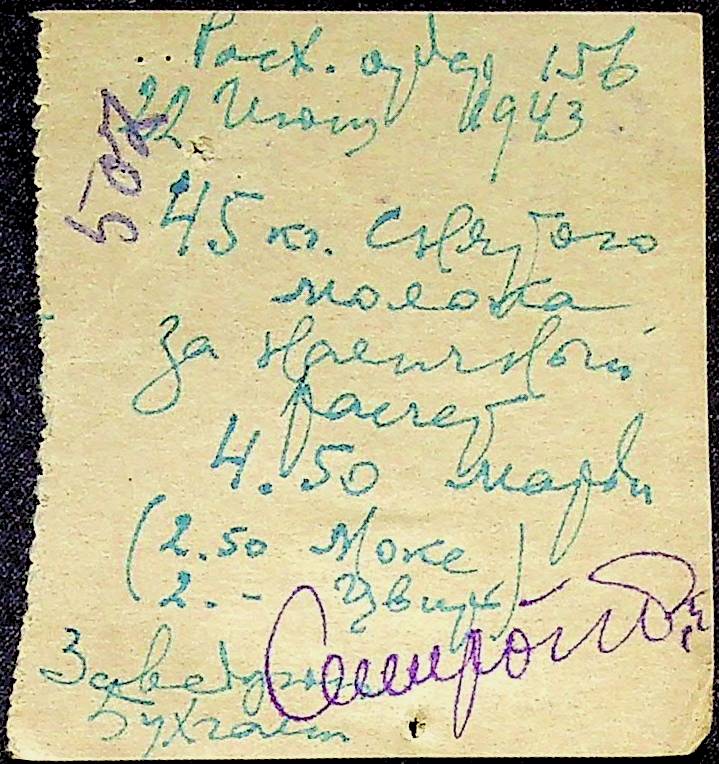 Расх. ордер 156
22 Июня 1943
50х
45 кг. снятого
молока
За наличный
расчет
4.50 марки
(2.50 Може
2.- Цвик)
Заведующ
Бухгалт